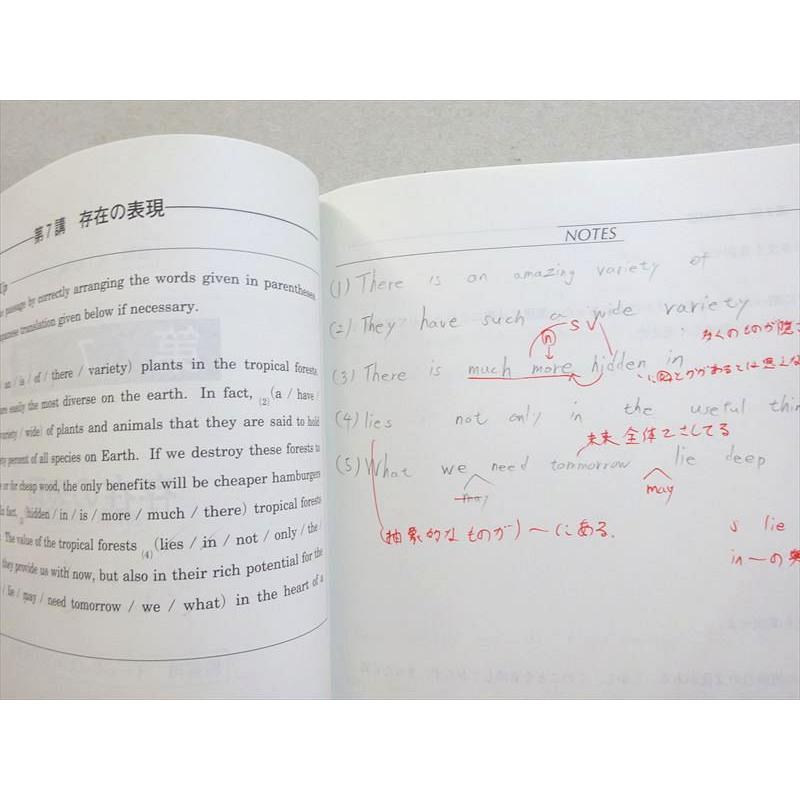 第7講 存在の表現
passage by correctly arranging the words given in parentheses.
translation given below if necessary.
/ is / of / there / variety) plants in the tropical forests
easily the most diverse on the earth. In fact, (2)(a / have /
/ wide) of plants and animals that they are said to hold
percent of all species on Earth. If we destroy these forests to
or for cheap wood, the only benefits will be cheaper hamburgers
fact, (hidden / in / is / more / much / there) tropical forests
The value of the tropical forests (4)(lies / in / not / only / the /
they provide us with now, but also in their rich potential for the
/ lie / may / need tomorrow / we / what) in the heart of a
NOTES
(1) There is an amazing variety of
(2) They have such a wide variety
S V
:多くのものが隠さ
(n)
(3) There is much more hidden in
(4) lies not only in the useful thin
未来全体をさしてる
(5) What we need tommorrow lie deep
may
may
(抽象的なものが)~にある.
s lie
in~の奥